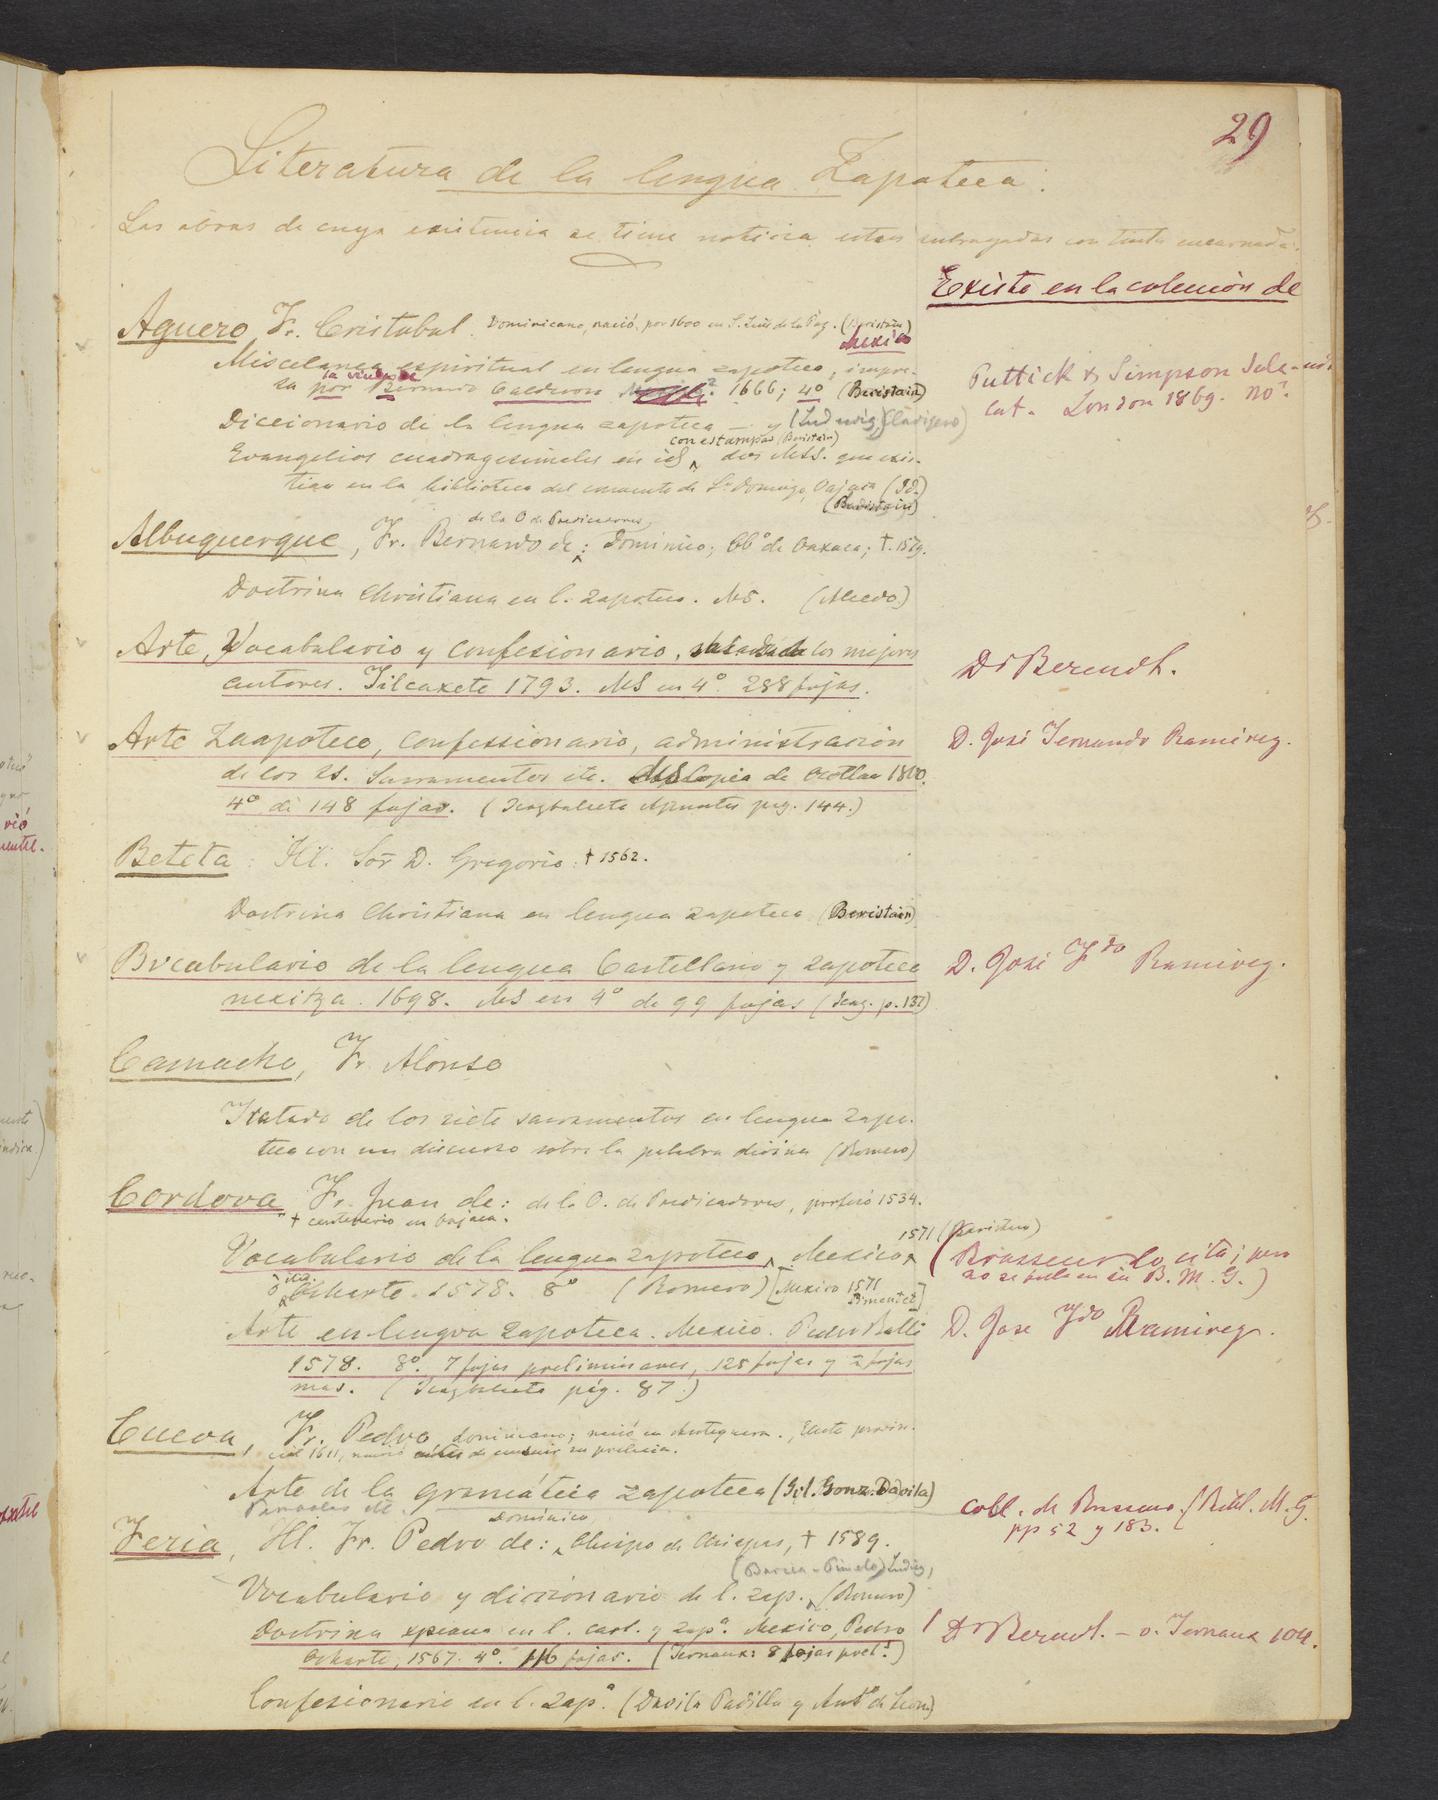 29
Literatura de la lengua Zapoteca.
Las obras de cuya existencia se tiene noticia estan subrayadas con tinta encarnada.
Existe en la colección de
Aguero Fr. Cristobal. Dominicano, nació por 1600 en S. Luis de la Paz. (Beristain)
Mexico
Miscelanea espiritual en lengua zapoteca; impre-
la viuda de
sa por Bernardo Calderon 1666; 4o (Beristain)
Puttick & Simpson Sale-
Cat. London 1869. No.
Diccionario de la lengua zapoteca — y (Ludewig, Clavigero)
con estampas (Beristain)
Evangelios cuadragesimales en id, dos MSS. que exis-
tian en la biblioteca del convento de Sto Domingo, Oajaca (Id.)
(Beristain)
de la O. de Predicadores,
Albuquerque, Fr. Bernardo de: Dominico; Obo de Oaxaca; † 1579.
Doctrina Christiana en l. zapoteca. MS.
Arte, Vocabulario y Confesionario, de los mejores
autores. Tilcaxete 1793. MS en 4o 288 fojas.
Dr Berendt.
Arte Zaapoteco, Confessionario, administracion
de los SS. Sacramentos etc. MS copia de Ocotlan 1800.
4o de 148 fojas. (Icazbalceta Apuntes pag. 144.)
D. José Fernando Ramirez.
Beteta: Ill. Sor D. Gregorio: † 1562.
Doctrina Christiana en lengua zapoteca (Beristain)
Bvcabulario de la lengua Castellana y zapoteca
nexitza. 1698. MS en 4o de 99 fojas (Icaz. p. 137)
D. José Fdo Ramirez.
Camacho, Fr. Alonso
Tratado de los siete sacramentos en lengua zapo-
teca con un discurso sobre la palabra divina (Romero)
Cordova Fr. Juan de: de la O. de Predicadores, profesó 1534.
† centenario en Oajaca.
1571 (Beristain)
Vocabulario de la lengua zapoteca, Mexico,
Ocharte. 1578. 8o (Romero) [Mexico 1571
Pimentel]
(Brasseur lo cita; pero
no se halla en su B. M. G.)
Arte en lengva zapoteca. Mexico. Pedro Balli
1578. 8o. 7 fojas preliminares, 125 fojas y 2 fojas
mas. (Icazbalceta pág. 87.)
D. Jose Fdo Ramirez.
Cueva, Fr. Pedro, dominicano; nació en Antequera. Electo provin-
cial 1611, murió antes de concluir su prelacia.
Arte de la gramática zapoteca (Gil. Gonz. Davila)
Coll. de Brasseur (Bibl. M. G.
pp 52 y 183.
Dominico,
Feria, Ill. Fr. Pedro de: Obispo de Chiapas, † 1589.
(Barcia-Pinelo) Ludwg,
Vocabulario y diccionario de l. zap. (Romero)
Doctrina xpiana en l. cast. y zapa. Mexico, Pedro
Ocharte, 1567. 4o. 116 fojas. (Ternaux: 8 fojas prels.)
Dr Berendt. — v. Ternaux 104.
Confesionario en l. Zapa. (Davila Padilla y Anto de Leon)